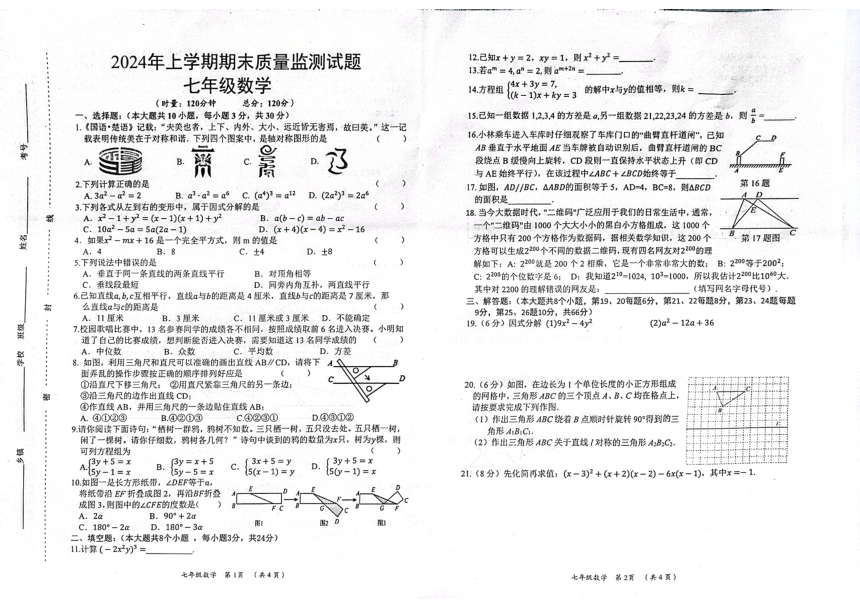 2024年上学期期末质量监测试题
七年级数学
(时量：120分钟 总分：120分)
一、选择题:（本大题共10小题，每小题3分，共30分）
1.《国语•楚语》记载:"夫美也者，上下、内外、大小、远近皆无害焉，故曰美。"这一记
载表明传统美在于对称和谐．下列四个图案中，是轴对称图形的是 ( )
A. B. C. D.
2.下列计算正确的是 ( )
A. 3a² − a² = 2 B. a³ · a² = a⁶ C. (a⁴)³ = a¹² D. (2a²)³ = 2a⁶
3.下列各式从左到右的变形中，属于因式分解的是 ( )
A．x² − 1 + y² = (x − 1)(x + 1) + y² B．a(b − c) = ab − ac
C．10a² − 5a = 5a(2a − 1) D．(x + 4)(x − 4) = x² − 16
4．如果x² − mx + 16 是一个完全平方式，则 m 的值是 ( )
A．4 B．8 C．±4 D．±8
5.下列说法中错误的是 ( )
A．垂直于同一条直线的两条直线平行 B．对顶角相等
C．垂线段最短 D．同旁内角互补，两直线平行
6.已知直线a, b, c互相平行，直线a与b的距离是 4 厘米，直线b与c的距离是 7 厘米，那
么直线a与c的距离是 ( )
A．11 厘米 B．3 厘米 C．11 厘米或 3 厘米 D．不能确定
7.校园歌唱比赛中，13 名参赛同学的成绩各不相同，按照成绩取前 6 名进入决赛。小明知
道了自己的比赛成绩，想判断能否进入决赛，需要知道这 13 名同学成绩的 ( )
A．中位数 B．众数 C．平均数 D．方差
8．如图，利用三角尺和直尺可以准确的画出直线 AB∥CD，请将下
面弄乱的操作步骤按正确的顺序排列好应是 ( )
①沿直尺下移三角尺； ②用直尺紧靠三角尺的另一条边；
③沿三角尺的边作出直线 CD；
④作直线 AB，并用三角尺的一条边贴住直线 AB；
A．④①②③ B.④②①③ C.④②③① D.④③①②
A B C D
9.请你阅读下面诗句："栖树一群鸦，鸦树不知数。三只栖一树，五只没去处。五只栖一树，
闲了一棵树。请你仔细数，鸦树各几何？"诗句中谈到的鸦的数量为x只，树为y棵，则
可列方程组为 ( )
A.{3y + 5 = x 5y − 1 = x B．{3y = x + 5 5y − 5 = x C．{3x + 5 = y 5(x − 1) = y D．{3y + 5 = x 5(y − 1) = x
10.如图一是长方形纸带，∠DEF等于α，
将纸带沿 EF 折叠成图 2，再沿BF折叠
成图 3,则图中的∠CFE的度数是( )
A．2α B．90° + 2α
C．180° − 2α D．180° − 3α
图1 图2 图3
二、填空题:（本大题共8个小题 ，每小题3分，共24分）
11.计算 (− 2x²y)³ =________.
七年级数学 第 1 页 （共 4 页）
12.已知x + y = 2，xy = 1，则 x² + y² =______.
13.若aᵐ = 4, aⁿ = 2, 则 aᵐ⁺²ⁿ = ______.
14.方程组 {4x + 3y = 7, (k − 1)x + ky = 3 的解中x与y的值相等，则k = ______.
15.已知一组数据 1,2,3,4 的方差是 a,另一组数据 21,22,23,24 的方差是 b，则 a/b =______.
16.小林乘车进入车库时仔细观察了车库门口的"曲臂直杆道闸"，已知
AB 垂直于水平地面 AE 当车牌被自动识别后，曲臂直杆道闸的 BC
段绕点 B 缓慢向上旋转，CD 段则一直保持水平状态上升（即 CD
与 AE 始终平行），在该过程中∠ABC + ∠BCD始终等于________.
第 16 题
17.如图，AD//BC，△ABD的面积等于 5，AD=4，BC=8，则△BCD
的面积是______.
第 17题图
18.当今大数据时代，"二维码"广泛应用于我们的日常生活中，通常，
一个"二维码"由 1000 个大大小小的黑白小方格组成，这 1000 个
方格中只有 200 个方格作为数据码，据相关数学知识，这 200 个
方格可以生成2²⁰⁰个不同的数据二维码，现有四名网友对2²⁰⁰的理
解如下：A: 2²⁰⁰就是 200 个 2 相乘，它是一个非常非常大的数； B: 2²⁰⁰等于200²；
C: 2²⁰⁰的个位数字是 6； D：我知道2¹⁰=1024, 10³=1000，所以我估计2²⁰⁰比10⁶⁰大.
其中对 2200 的理解错误的网友是：____________（填写网名字母代号）.
三、解答题:（本大题共8个小题，第19、20每题6分，第21、22每题8分，第23、24题每题
9分，第25、26题10分，共66分）
19.（6 分）因式分解 (1)9x² − 4y² (2)a² − 12a + 36
20.（6 分）如图，在边长为 1 个单位长度的小正方形组成
的网格中，三角形 ABC 的三个顶点 A、B、C 均在格点上，
请按要求完成下列作图.
（1）作出三角形 ABC 绕着 B 点顺时针旋转 90°得到的三
角形 A₁B₁C₁.
（2）作出三角形 ABC 关于直线 l 对称的三角形 A₂B₂C₂.
21.（8 分）先化简再求值：(x − 3)² + (x + 2)(x − 2) − 6x(x − 1)，其中x = − 1.
七年级数学 第 2 页 （共 4 页）
考号
姓名
班级
学校
乡镇
线
封
密